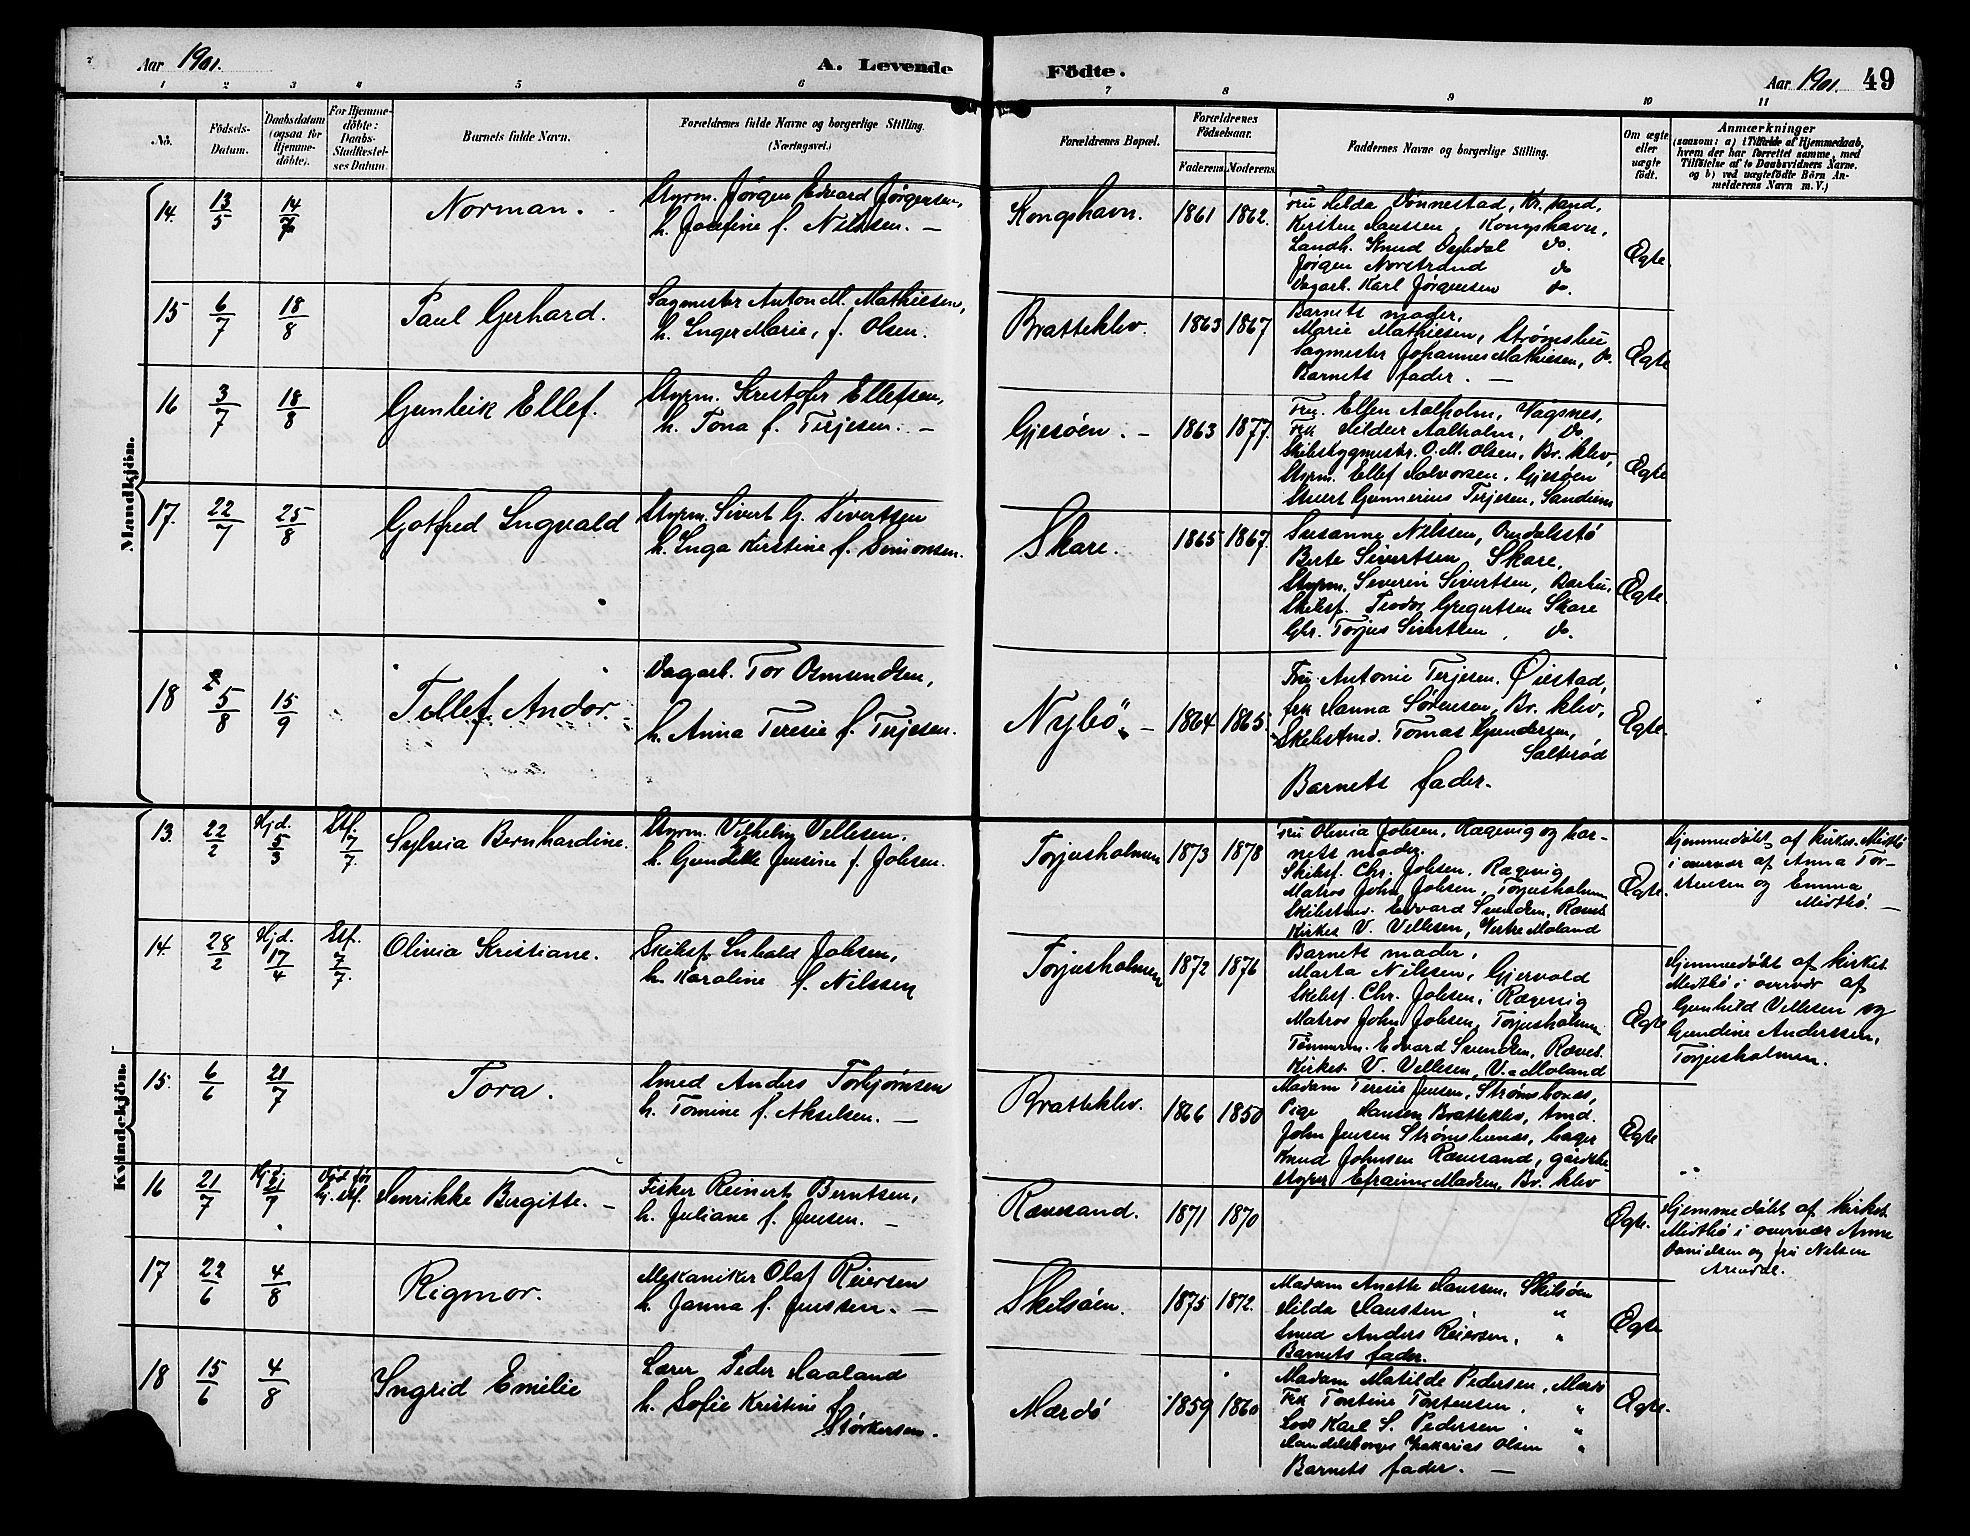 Aar 1901. A. Levende Födte. Aar 1901. 49
1 2 3 4 5 6 7 8 9 10 11
No.
Födsels-
Datum.
Daabsdatum
(ogsaa for
Hjemme-
döbte).
For Hjemme-
döbte:
Daabs-
Stadfæstel-
ses Datum.
Barnets fulde Navn.
Forældrenes fulde Navne og borgerlige Stilling.
(Næringsvei.)
Forældrenes Bopæl.
Forældrenes
Födselsaar.
Faderens Moderens
Faddernes Navne og borgerlige Stilling.
Om ægte
eller
uægte
födt.
Anmærkninger
(saasom: a) i Tilfælde af Hjemmedaab,
hvem der har forrettet samme, med
Tilföielse af to Daabsvidners Navne.
og b) ved uægtefödte Börn An-
melderens Navn m. V.)
Mandkjön.
14. 13/5 14/7 Norman.
Styrm. Jørgen Edvard Jørgensen,
h. Josefine f. Nilssen. —
Kongshavn. 1861 1862.
Fru Hilda Dønnestad, Kr.sand,
Kirsten Hanssen, Kongshavn,
Landh. Knud Dybdal do.
Jørgen Norstrand do
Dagarb. Karl Jørgensen do.
Ægte.
15 6/7 18/8 Paul Gerhard.
Sagmester Anton M. Mathiesen,
h. Inger Marie, f. Olsen.
Bratteklev. 1863 1867
Barnets moder,
Marie Mathiesen, Strømsbu
Sagmester Johannes Mathiesen, do.
Barnets fader. —
Ægte
16 3/7 18/8 Gunleik Ellef.
Styrm. Kristofer Ellefsen,
h. Tona f. Terjesen. —
Gjesøen. — 1863 1877.
Fru. Ellen Aalholm, Vågsnes,
Frk Hildur Aalholm, do.
Skibsbygmestr. O. M. Olsen, Br. klev,
Styrm. Ellef Halvorsen, Gjesøen
Stuert Gunnerius Terjesen, Sandum
Ægte
17. 22/7 25/8 Gotfred Ingvald
Styrm. Sivert G. Sivertsen
h. Inga Kirstine f. Simonsen.
Skare. 1865 1867.
Susanne Nilssen, Omdalsstø
Berte Sivertsen, Skare,
Styrm. Severin Sivertsen, Barbu,
Skibsf. Teodor Gregertsen Skare
Gbr. Torjus Sivertsen, do.
Ægte.
18 5/8 15/9 Tellef Andor.
Dagarb. Tor Osmundsen,
h. Anna Teresie f. Terjesen.
Nybö. — 1864 1865.
Fru. Antonie Terjesen, Øiestad,
frk Hanna Sørensen, Br. klev,
Skibstmd. Tomas Gundersen,
Salterød
Barnets fader.
Ægte.
Kvindekjön.
13. 22/2 Hjd. 5/3 Stf. 7/7 Sylvia Bernhardine.
Styrm. Vilhelm Vellesen,
h. Gundille Jensine f. Jobsen.
Torjusholmen 1873 1878
Fru Olivia Jobsen, Rægevig og bar-
nets moder.
Skibsf. Chr. Jobsen, Rægevig
Matros John Jobsen, Torjusholmen
Skibstmd. Edvard Svendsen, Rævs.
Kirkes V. Vellesen, Vestre Moland
Ægte.
Hjemmedøbt af kirkes. Midtbø
i overvær af Anna Tor-
stensen og Emma
Midtbø. —
14. 28/2 Hjd. 17/4 Stf. 7/7. Olivia Kristiane.
Skibsf. Inbald Jobsen,
h. Karoline f. Nilssen
Torjusholmen 1872 1876
Barnets moder,
Marta Nilsen, Gjervold
Skibsf. Chr. Jobsen, Rægevig
Matros John Jobsen, Torjusholmen
Tømmerm. Edvard Svendsen, Rævs.
Kirkes V. Vellesen, V. Moland
Ægte
Hjemmedøbt af kirkes.
Midtbø i overvær af
Gunhild Vellesen og
Gundine Anderssen,
Torjusholmen.
15. 6/6 21/7 Tora.
Smed Anders Torbjørnsen
h. Tomine f. Akselsen. —
Bratteklev. 1866 1850
Madam Teresie Jensen, Strømsbones,
Pige Hansen Bratteklev, tmd.
John Jensen Strømsbunes, bager
Knud Johnsen Rævesand, gårdbe-
styrer Efraim Madsen, Br. klev
Ægte
16 21/7 Hjd. 21/7 Død før hj. stf. Henrikke Birgitte. —
Fisker Reinert Berntsen,
h. Juliane f. Jensen. —
Rævesand. 1871 1870
Ægte.
Hjemmedøbt af kirkes.
Midtbø i overvær Anne
Danielsen og fru Nilsen
Arendal.
17 22/6 4/8 Rigmor.
Mekaniker Olaf Reiersen
h. Janna f. Jenssen. —
Skilsøen. 1875 1872.
Madam Anette Hanssen, Skilsøen
Hilda Hanssen, "
Smed Anders Reiersen, "
Barnets fader.
Ægte
18 15/6 4/8 Ingrid Emilie
Lærer Peder Haaland
h. Sofie Kristine f.
Størkersen.
Mærdö 1859 1860
Madam Matilde Pedersen, Mærdö
Frk Torstine Torstensen. "
Lods Karl S. Pedersen. "
Handelsborger Zakarias Olsen "
Barnets fader. —
Ægte.